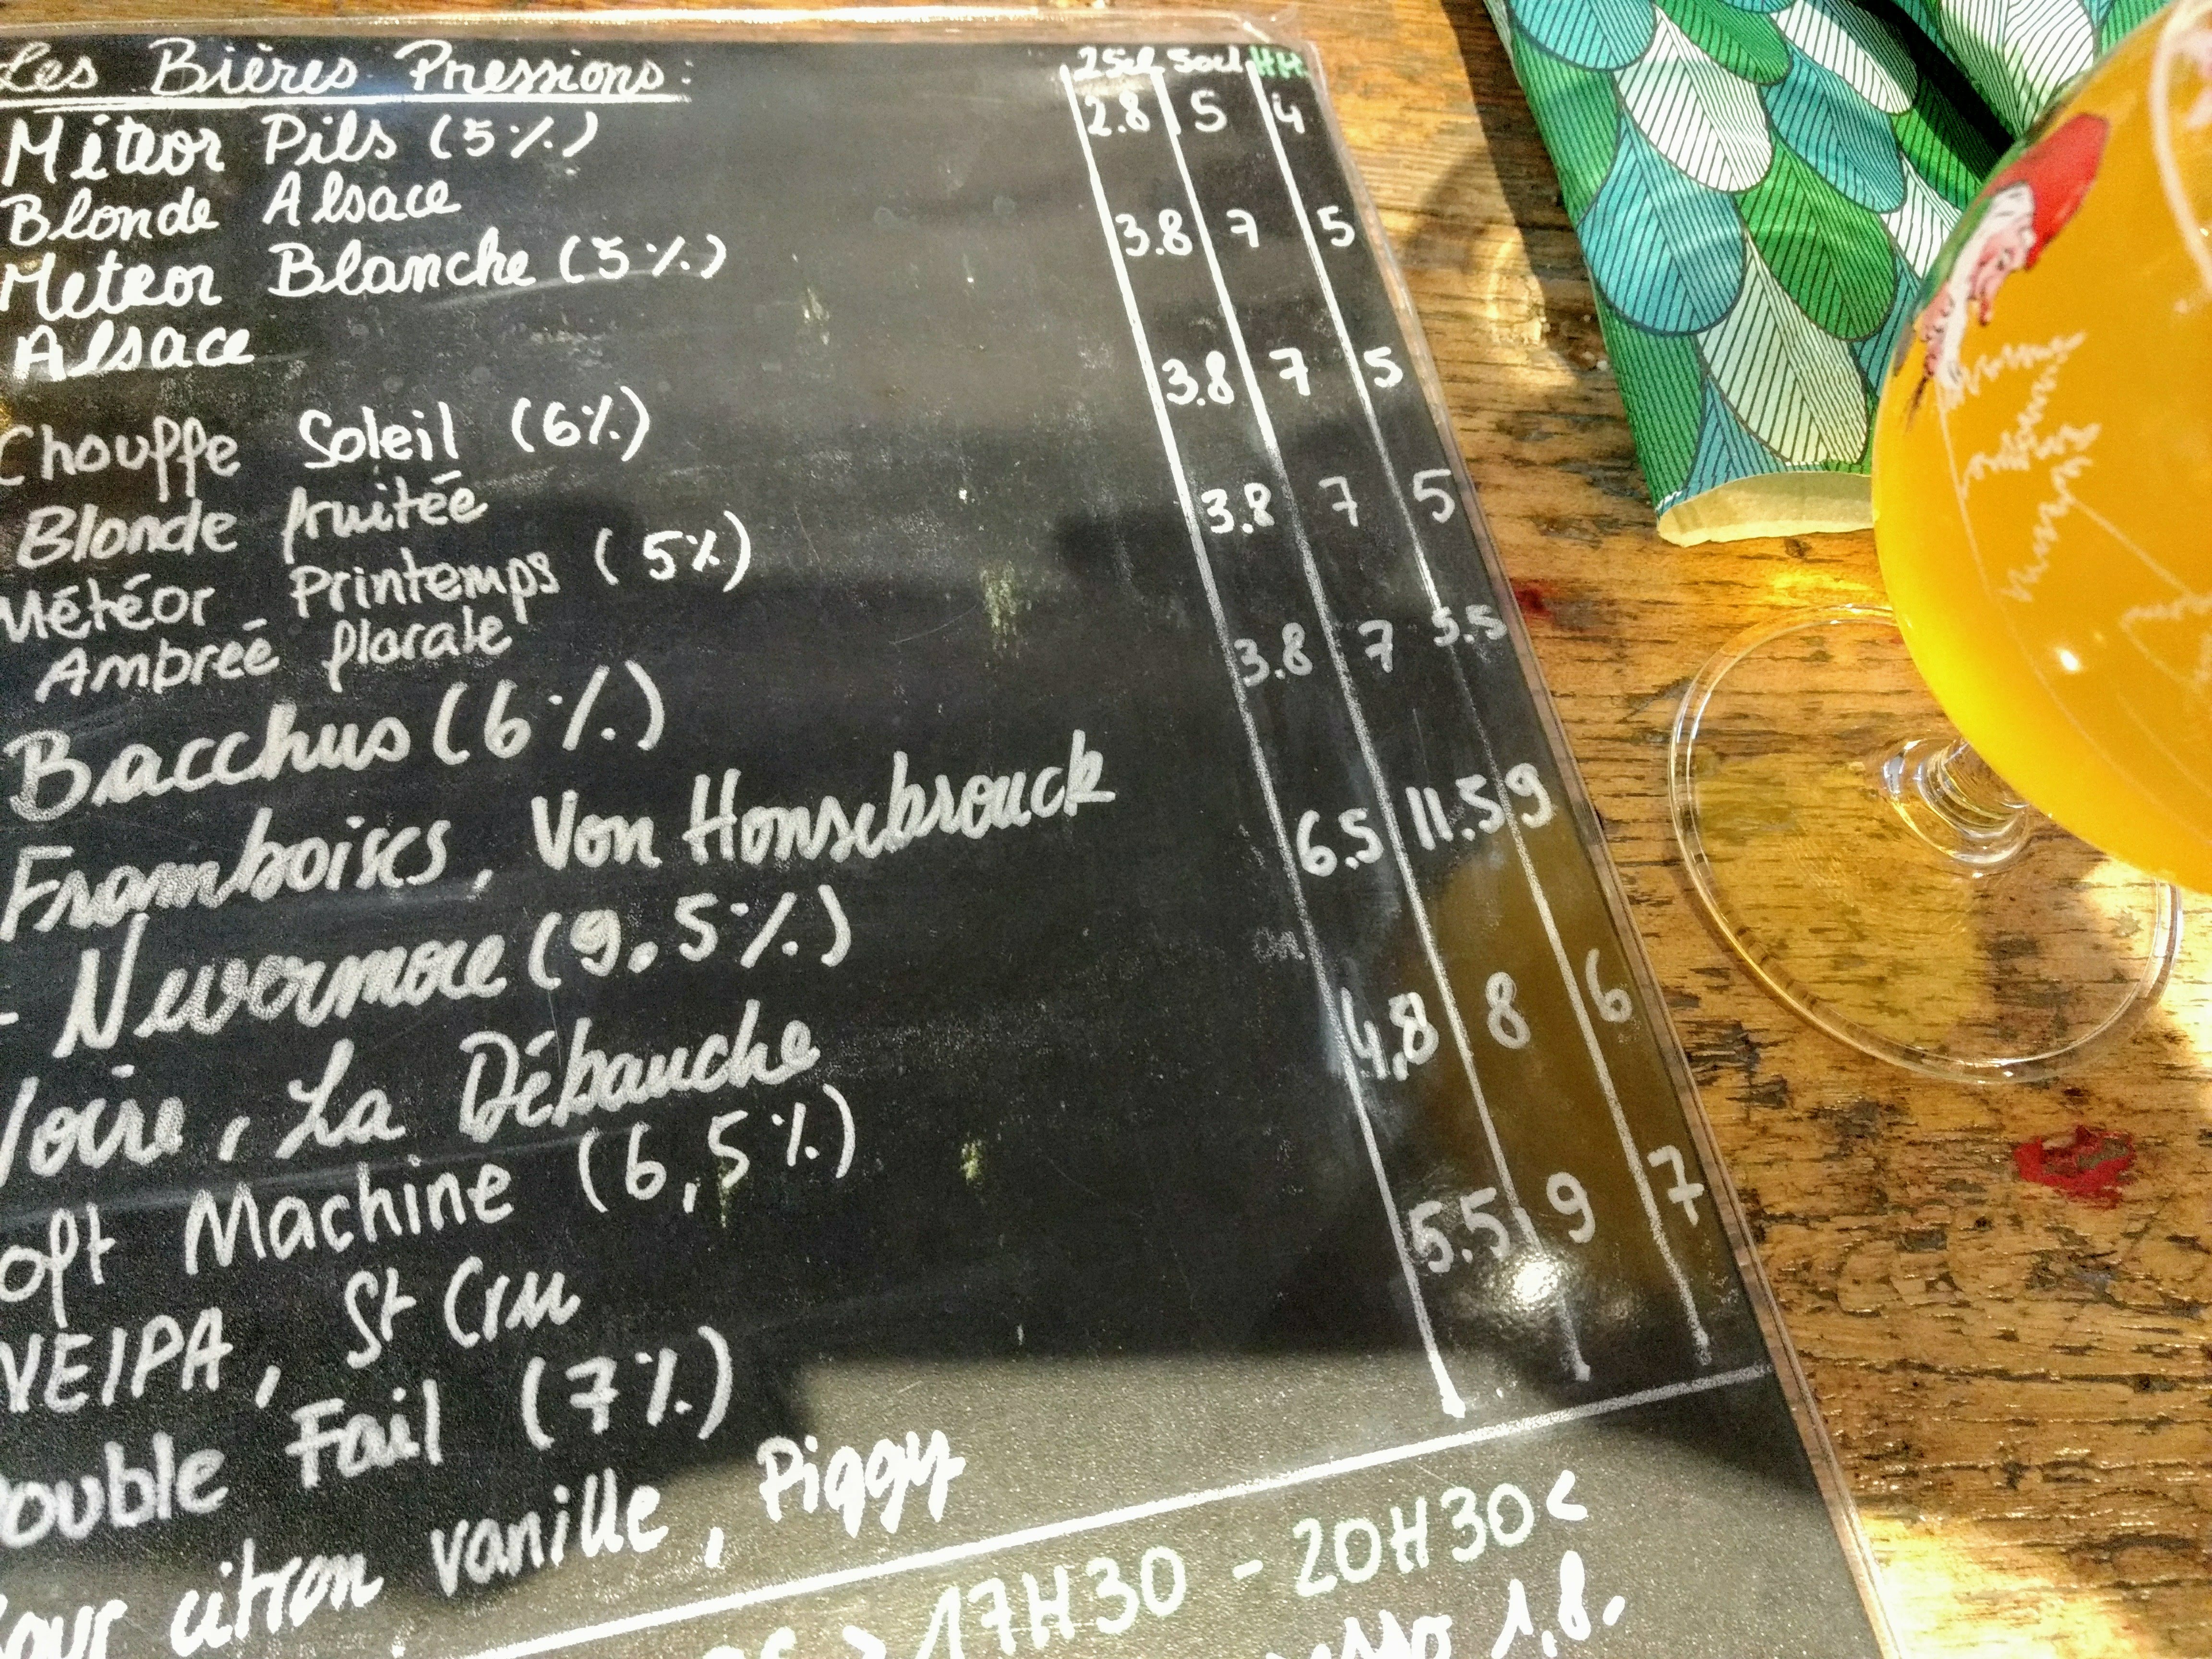 Les Bières Pressions: 25cl 50cl HH
Météor Pils (5%) 2.8 5 4
Blonde Alsace
Meteor Blanche (5%) 3.8 7 5
Alsace
Chouffe Soleil (6%) 3.8 7 5
Blonde fruitée
Météor Printemps (5%) 3.8 7 5
Ambreé florale
Bacchus (6%) 3.8 7 5.5
Framboises, Von Honsebrouck
- Nevermore (9.5%) 6.5 11.5 9
Noire, La Débauche
oft Machine (6,5%) 4,8 8 6
NEIPA, St Cru
Double Fail (7%) 5.5 9 7
our citron vanille, Piggy
> 17H30 - 20H30 <
1,8.